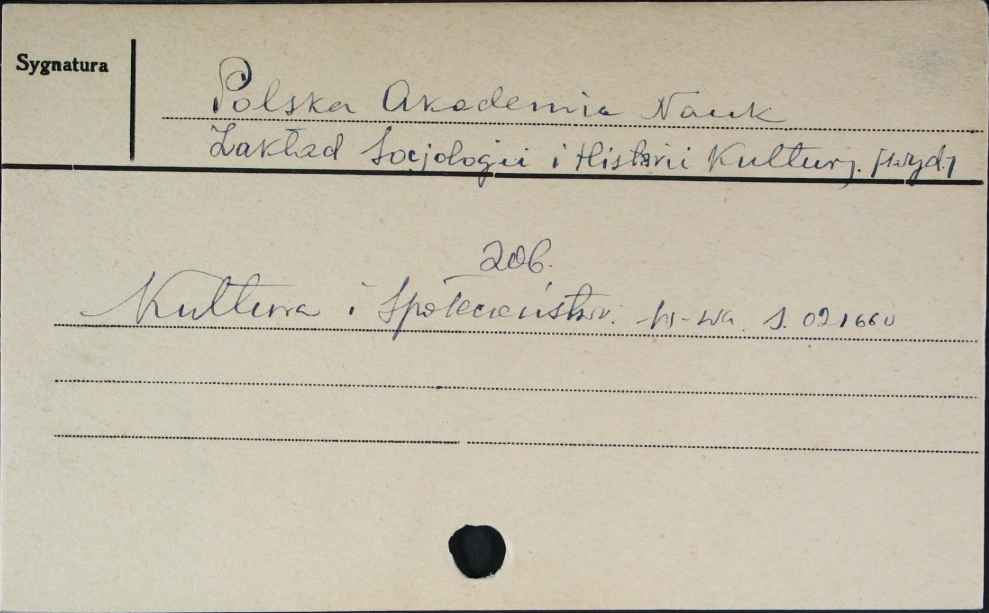 Sygnatura
Polska Akademia Nauk
Zakład Socjologii i Historii Kultury. [wyd.]
zob.
Kultura i Społeczeństwo. W-wa. S. 021660